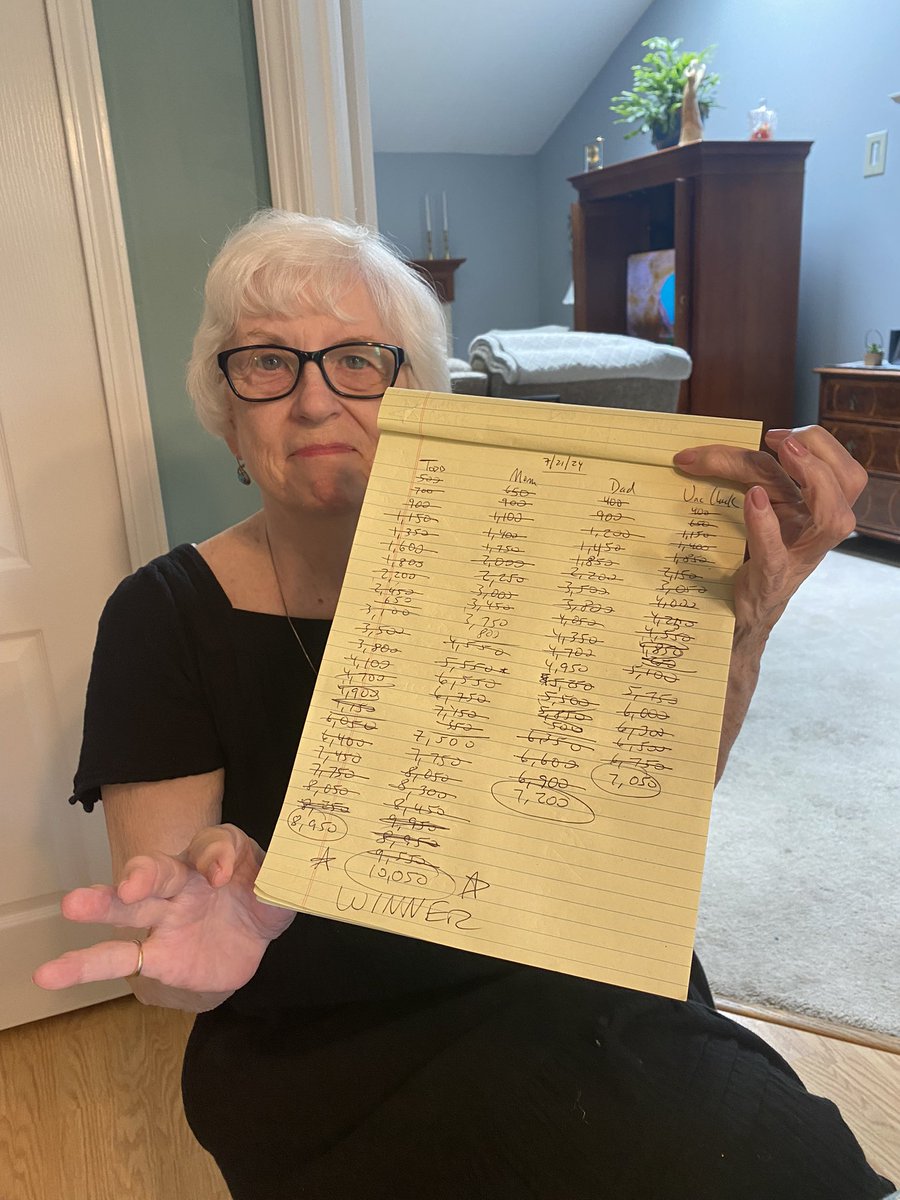 7/21/24
Todd
500
700
900
1,150
1,350
1,600
1,800
2,200
2,450
650
3,100
3,500
3,800
4,100
4,700
4,900
6,050
6,400
7,450
7,750
8,050
8,950
Mom
650
900
1,100
1,400
1,750
2,000
2,250
3,000
3,450
3,750
800
4,550
5,550
6,550
6,750
7,150
7,500
7,750
8,050
8,300
8,450
8,950
9,550
10,050
WINNER
Dad
400
900
1,200
1,450
1,850
2,200
3,500
3,800
4,050
4,350
4,700
4,950
5,500
6,350
6,600
6,900
7,200
Unc Chuck
400
650
1,150
1,400
1,850
2,150
3,050
4,000
4,200
4,550
4,850
5,100
5,750
6,000
6,300
6,500
6,750
7,050